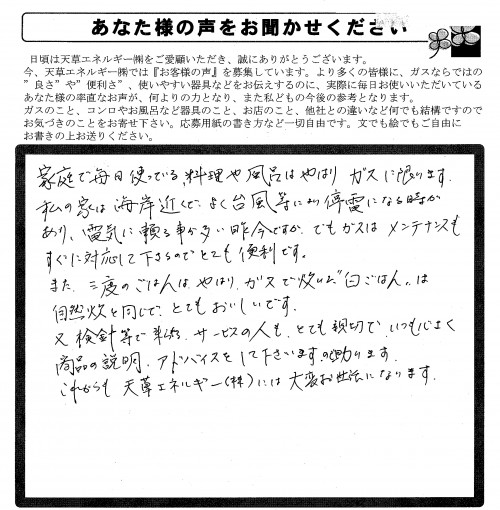 あなた様の声をお聞かせください
日頃は天草エネルギー㈱をご愛顧いただき、誠にありがとうございます。
今、天草エネルギー㈱では『お客様の声』を募集しています。より多くの皆様に、ガスならではの
"良さ"や"便利さ"、使いやすい器具などをお伝えするのに、実際に毎日お使いいただいている
あなた様の率直なお声が、何よりの力となり、また私どもの今後の参考となります。
ガスのこと、コンロやお風呂など器具のこと、お店のこと、他社との違いなど何でも結構ですので
お気づきのことをお寄せ下さい。応募用紙の書き方など一切自由です。文でも絵でもご自由に
お書きの上お送りください。
家庭で毎日使っている、料理や風呂はやはりガスに限ります。
私の家は海岸近くで、よく台風等により停電になる時が
あり、電気に頼る事が多い昨今ですが、でもガスはメンテナンスも
すぐに対応して下さるのでとても便利です。
また、三度のごはんは、やはり、ガスで炊いた"白ごはん"は
自然炊と同じで、とてもおいしいです。
又検針等で来る、サービスの人も、とても親切で、いつも心よく
商品の説明、アドバイスをして下さいますので助ります。
これからも天草エネルギー(株)には大変お世話になります。